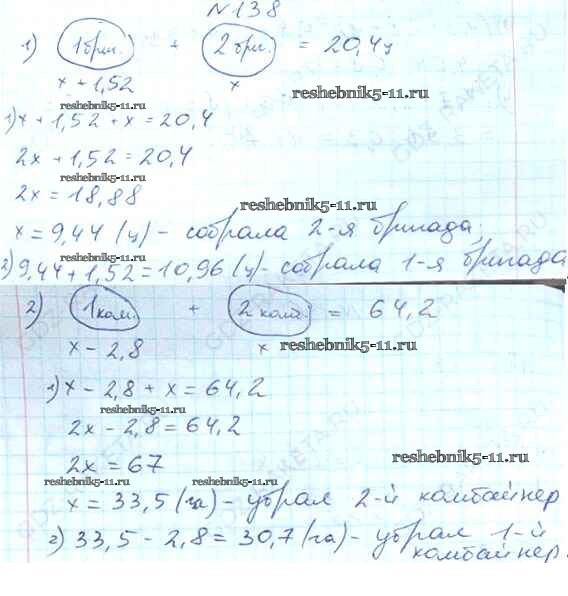 №138
1) 1 бриг. + 2 бриг. = 20,4ц
x + 1,52 x
reshebnik5-11.ru
reshebnik5-11.ru
1) x + 1,52 + x = 20,4
2x + 1,52 = 20,4
reshebnik5-11.ru
2x = 18,88
reshebnik5-11.ru
x = 9,44 (ц) - собрала 2-я бригада;
reshebnik5-11.ru
2) 9,44 + 1,52 = 10,96 (ц) - собрала 1-я бригада
2) 1 ком. + 2 комб. = 64,2
x - 2,8 x
reshebnik5-11.ru
1) x - 2,8 + x = 64,2
reshebnik5-11.ru
2x - 2,8 = 64,2
reshebnik5-11.ru
2x = 67
reshebnik5-11.ru reshebnik5-11.ru
x = 33,5 (га) - убрал 2-й комбайнер
2) 33,5 - 2,8 = 30,7 (га) - убрал 1-й
комбайнер.